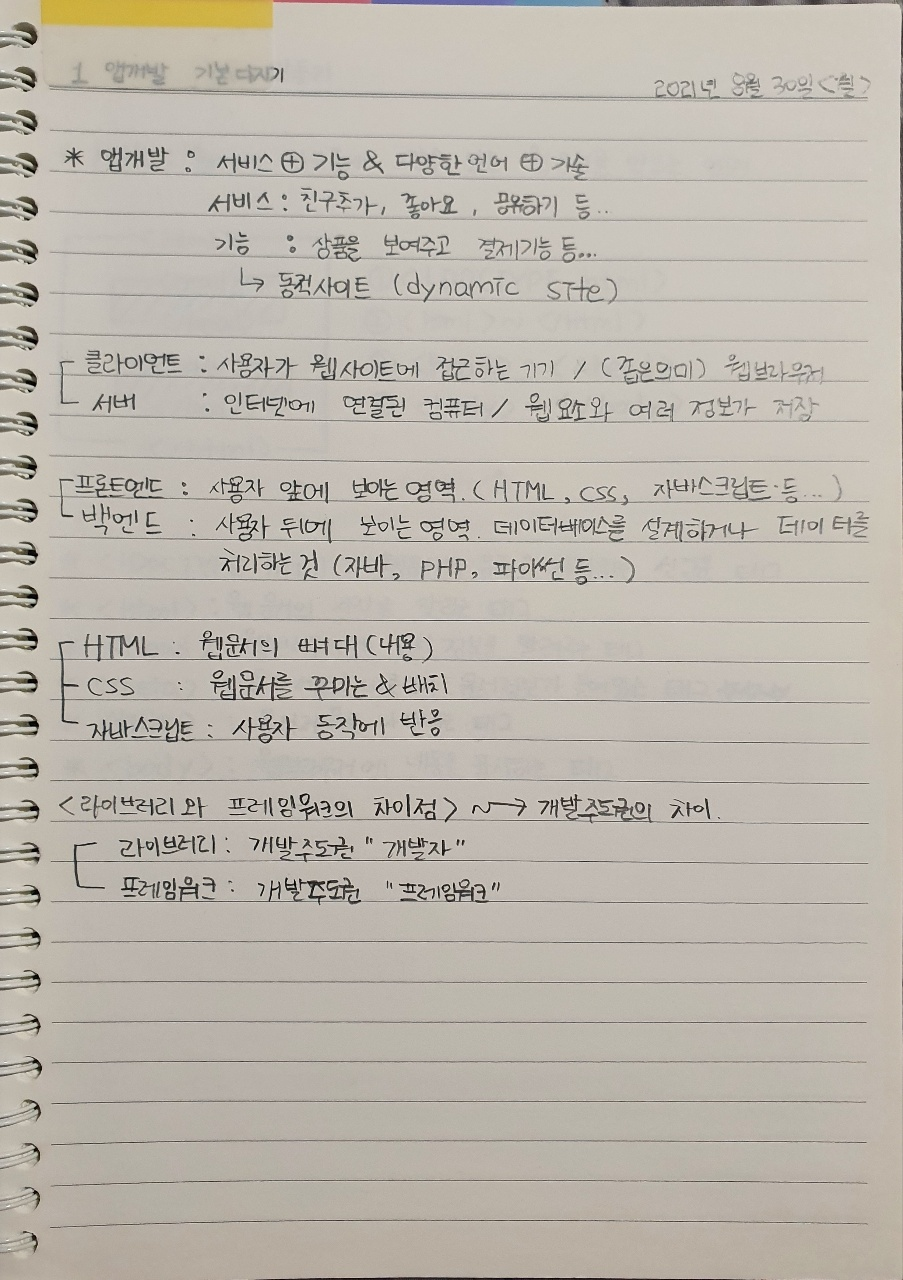 1 앱개발 기본다지기
2021년 8월 30일 <월>
* 앱개발 : 서비스 ⊕ 기능 & 다양한 언어 ⊕ 기술
서비스 : 친구추가, 좋아요, 공유하기 등...
기능 : 상품을 보여주고 결제기능 등...
↳ 동적사이트 (dynamic site)
클라이언트 : 사용자가 웹사이트에 접근하는 기기 / (좁은의미) 웹브라우저
서버 : 인터넷에 연결된 컴퓨터 / 웹 요소와 여러 정보가 저장
프론트엔드 : 사용자 앞에 보이는 영역. (HTML, CSS, 자바스크립트 등...)
백엔드 : 사용자 뒤에 보이는 영역. 데이터베이스를 설계하거나 데이터를
처리하는 것 (자바, PHP, 파이썬 등...)
HTML : 웹문서의 뼈대 (내용)
CSS : 웹문서를 꾸미는 & 배치
자바스크립트 : 사용자 동작에 반응
<라이브러리와 프레임워크의 차이점> ~→ 개발주도권의 차이.
라이브러리 : 개발주도권 "개발자"
프레임워크 : 개발주도권 "프레임워크"